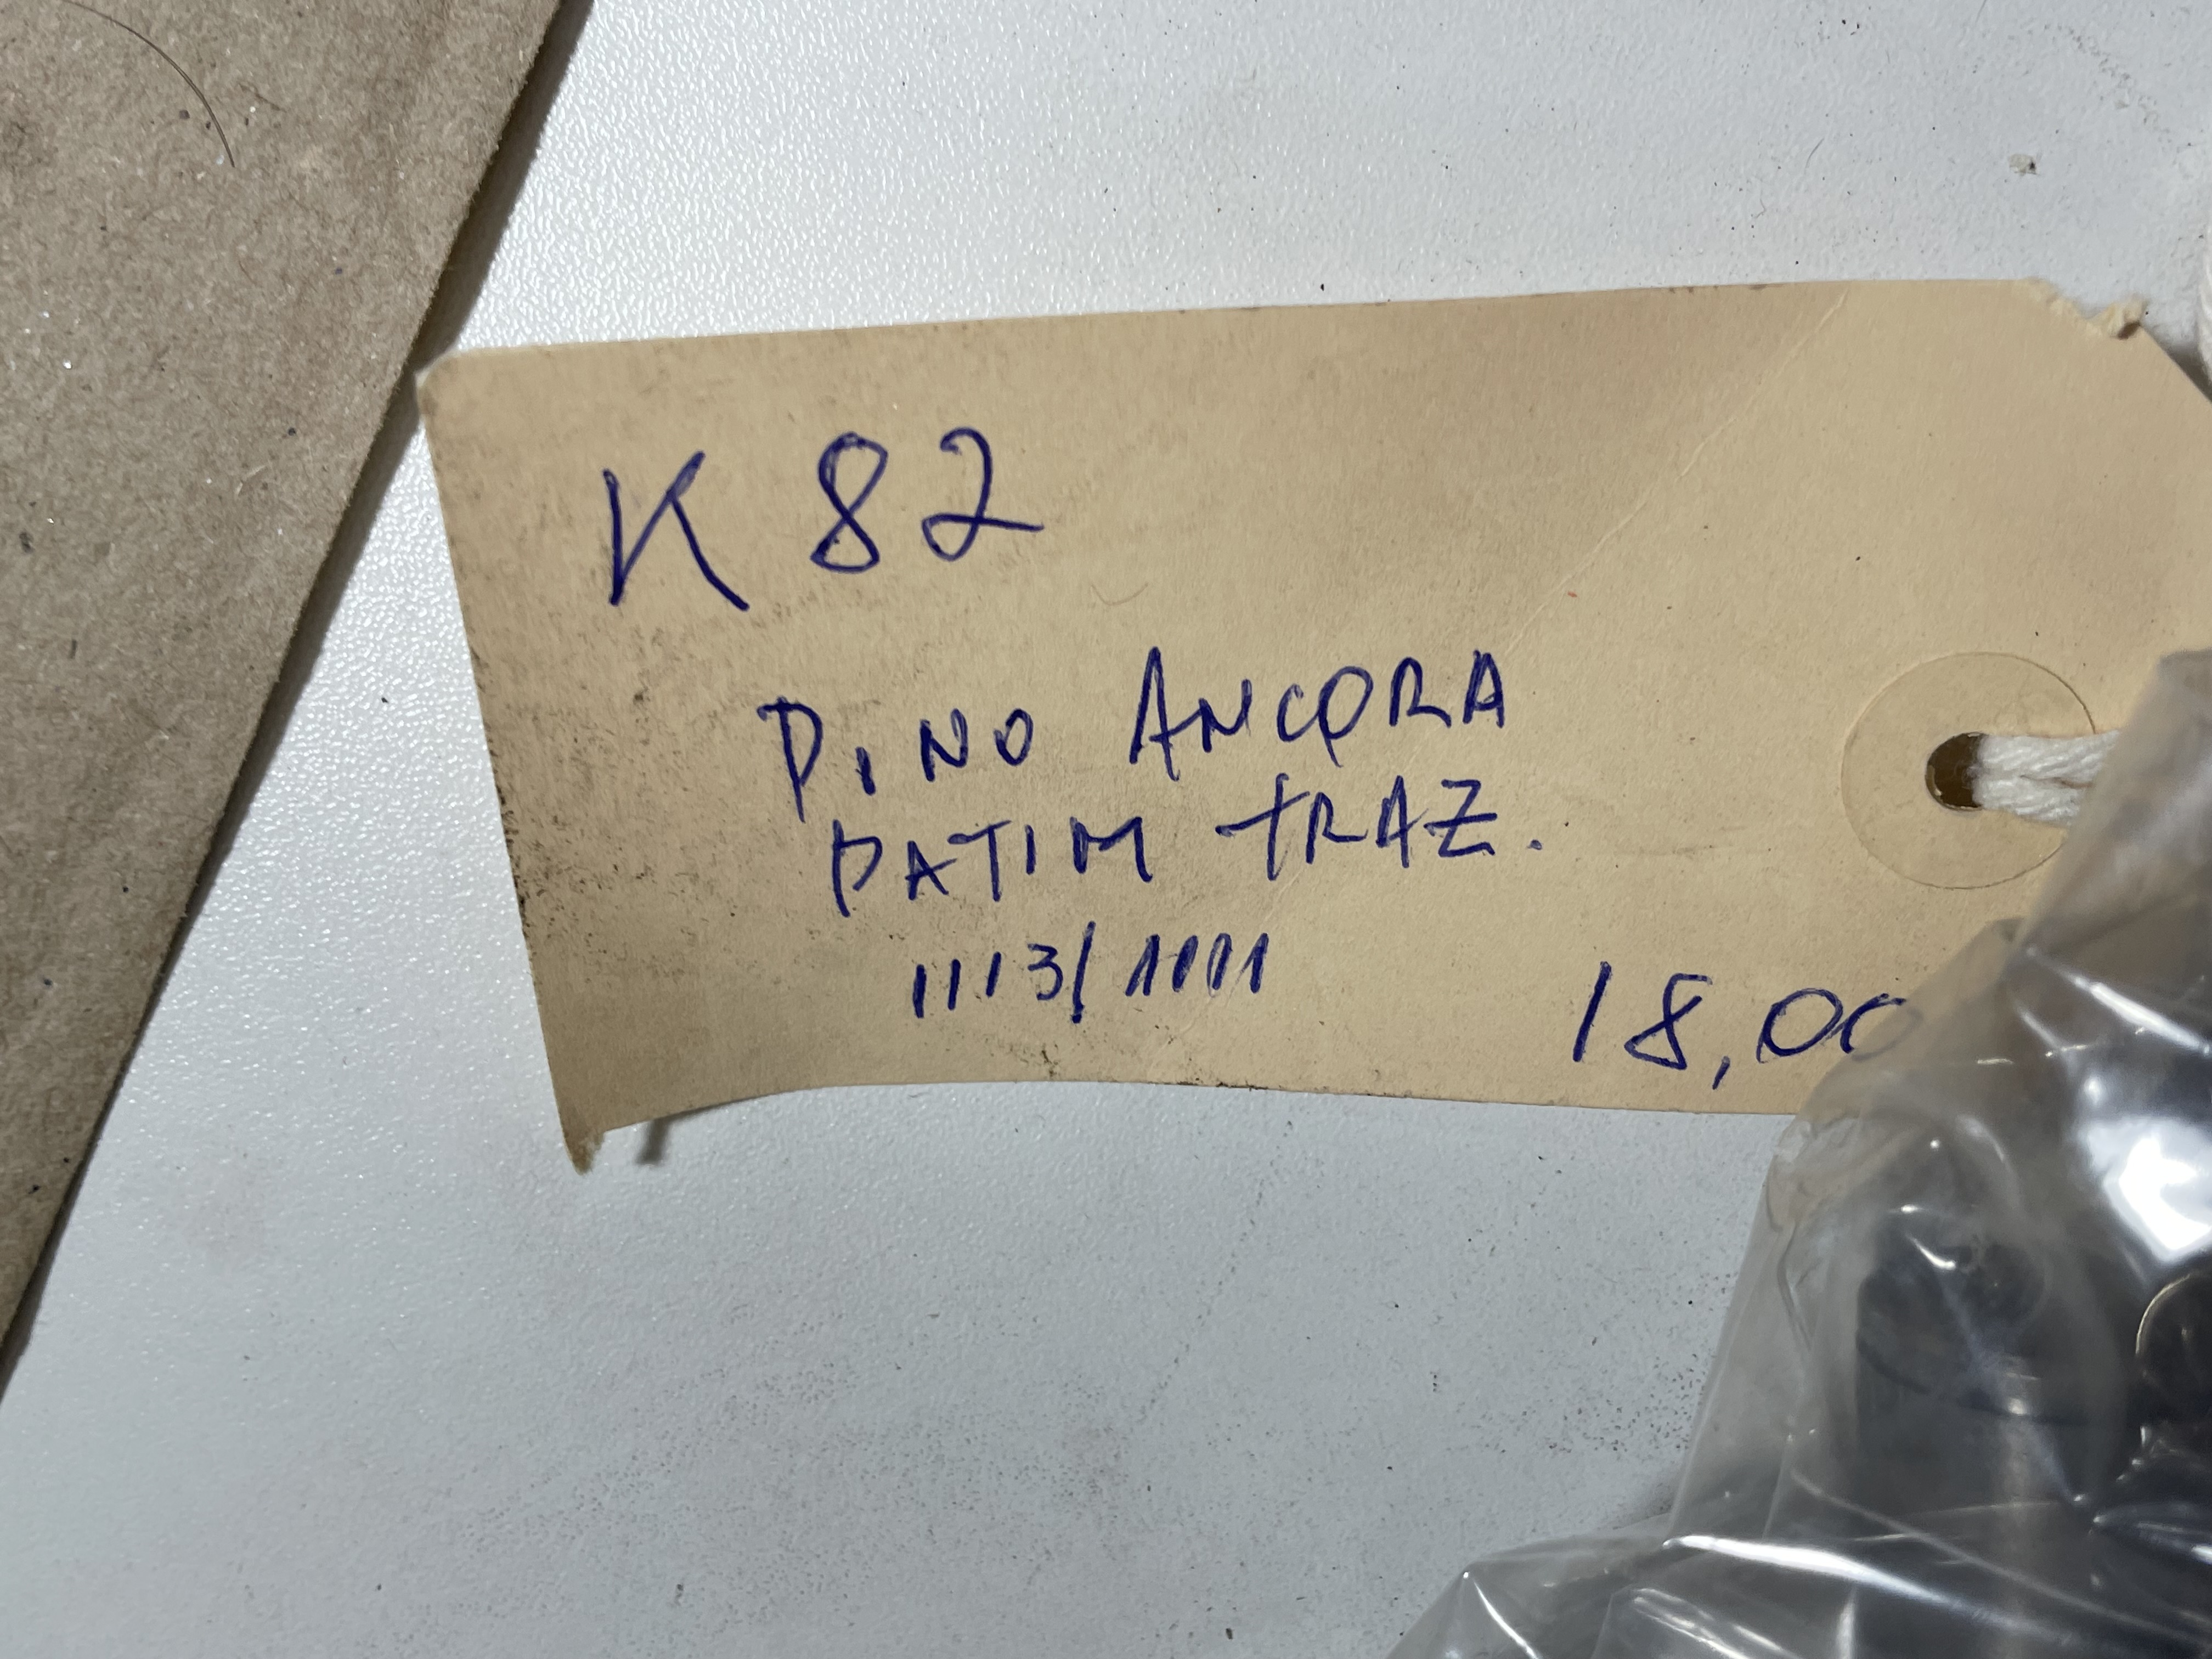 K 82
PiNO ANCORA
PATIM TRAZ.
1113/1111
18,00